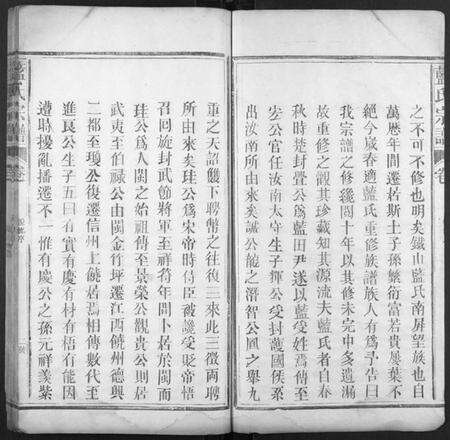 之不可不修也明矣鐵山藍氏南屏望族也自
萬曆年間遷若斯土子孫繁衍富若貴屢葉不
絕今歲春適藍氏重修族譜族人有爲予告曰
我宗譜之修幾閱十年以其修未完中多遺漏
故重修之觀其珍藏知其源流大藍氏者自春
秋時楚封亹公爲藍田尹遂以藍受姓焉傳至
宏公官任汝南太守生子揮公受封護國侯系
出汝南所由來矣誠公龍之潛智公鳳之舉九
重之天詔儼下聘幣之往復三來此三徵兩聘
所由來矣珪公爲宋帝時侍臣被讒受貶帝悟
召囘旋封武節將軍至祥符年間卜居於閩而
珪公爲人閩之始祖傳至景榮公觀貴公則居
武夷至伯祿公由閩金竹坪遷江西饒州德興
二都至瓊公復遷信州上饒居焉相傳數代至
進良公生子五曰有實有慶有材有梧有能因
遭時擾亂播遷不一惟有慶公之孫元祥美紫
藍氏宗譜
卷
藍氏宗譜
卷